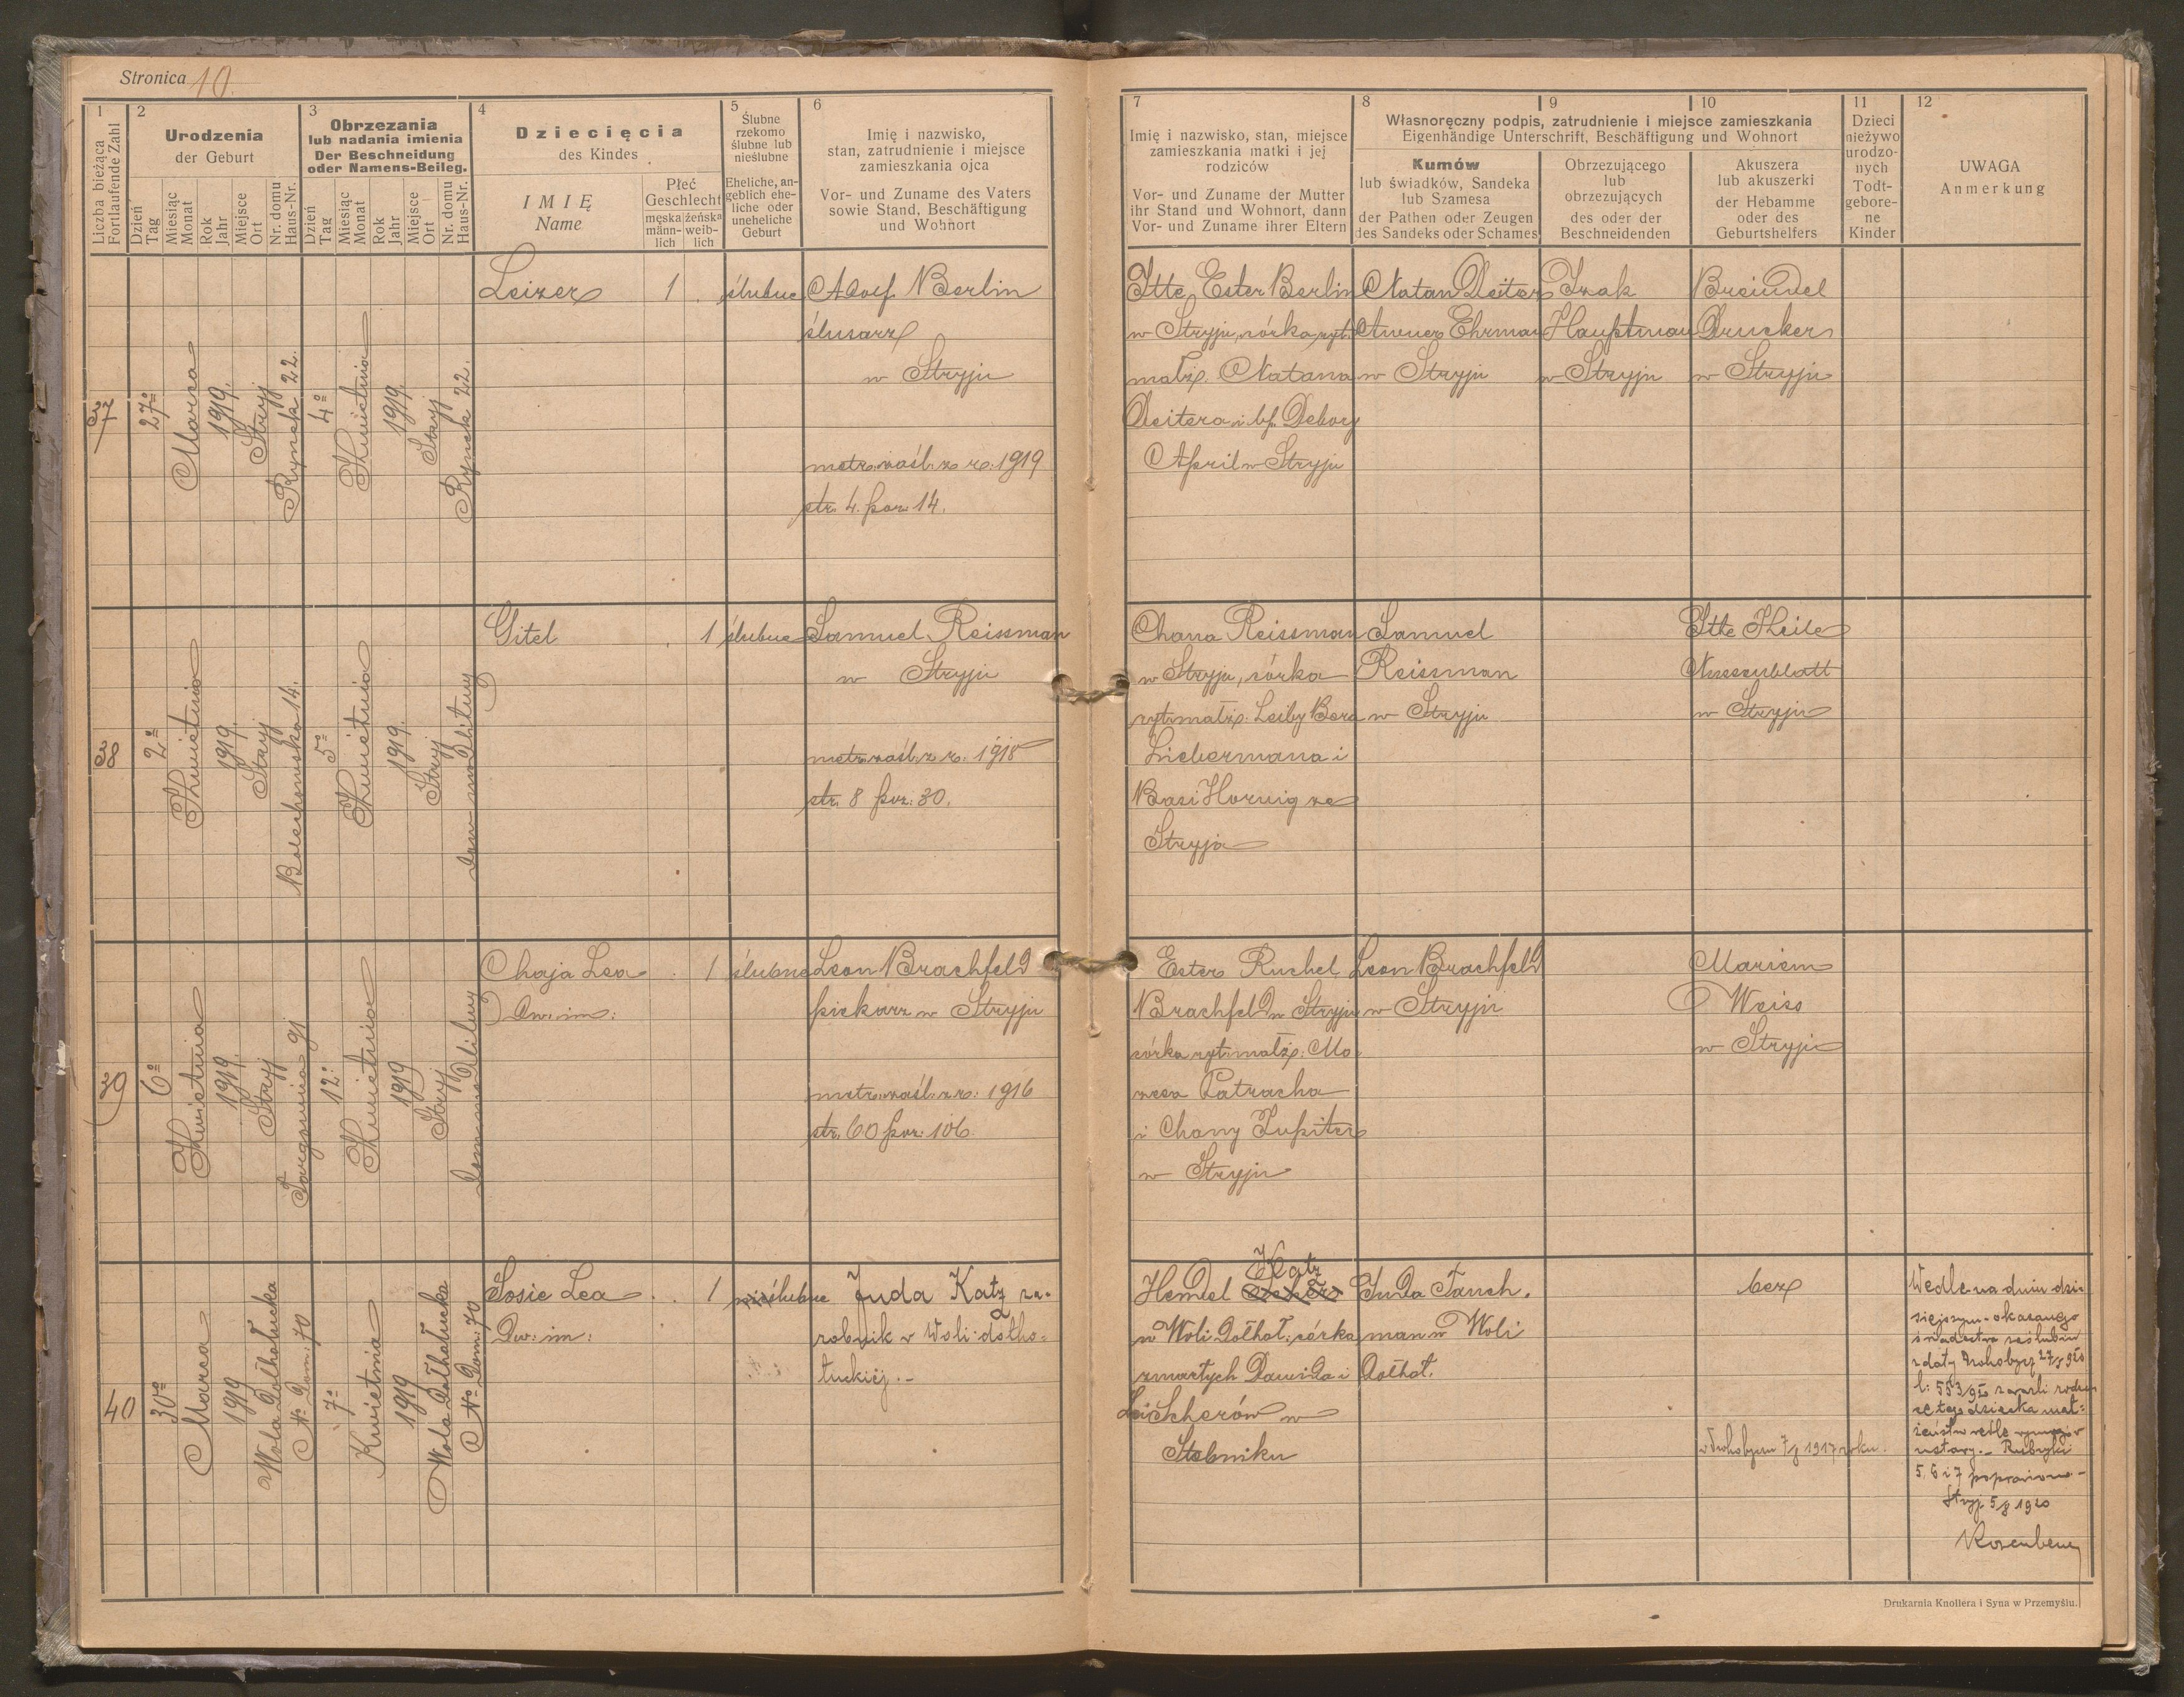 Stronica 10.
1
2
3
4
5
6
Liczba bieżąca
Fortlaufende Zahl
Urodzenia
der Geburt
Dzień
Tag
Miesiąc
Monat
Rok
Jahr
Miejsce
Ort
Nr. domu
Haus-Nr.
Obrzezania
lub nadania imienia
Der Beschneidung
oder Namens-Beileg.
Dzień
Tag
Miesiąc
Monat
Rok
Jahr
Miejsce
Ort
Nr. domu
Haus-Nr.
Dziecięcia
des Kindes
IMIĘ
Name
Płeć
Geschlecht
męska
männ-
lich
żeńska
weib-
lich
Ślubne
rzekomo
ślubne lub
nieślubne
Eheliche, an-
geblich ehe-
liche oder
uneheliche
Geburt
Imię i nazwisko,
stan, zatrudnienie i miejsce
zamieszkania ojca
Vor- und Zuname des Vaters
sowie Stand, Beschäftigung
und Wohnort
7
8
9
10
11
12
Imię i nazwisko, stan, miejsce
zamieszkania matki i jej
rodziców
Vor- und Zuname der Mutter
ihr Stand und Wohnort, dann
Vor- und Zuname ihrer Eltern
Własnoręczny podpis, zatrudnienie i miejsce zamieszkania
Eigenhändige Unterschrift, Beschäftigung und Wohnort
Kumów
lub świadków, Sandeka
lub Szamesa
der Pathen oder Zeugen
des Sandeks oder Schames
Obrzezującego
lub
obrzezujących
des oder der
Beschneidenden
Akuszera
lub akuszerki
der Hebamme
oder des
Geburtshelfers
Dzieci
nieżywo
urodzo-
nych
Todt-
gebore-
ne
Kinder
UWAGA
Anmerkung
37
27º
Marca
1919.
Stryj
Rynek 22.
4º
Kwietnia
1919.
Stryj
Rynek 22.
Leizer
1
ślubne
Adolf Berlin
ślusarz
w Stryju
metr. zaśl. z r. 1919
str. 4. poz. 14.
Itte Ester Berlin
w Stryju, córka ryt.
małż. Natana
Deitera i bł. Debory
April w Stryju
Natan Deiter
Awner Ehrman
w Stryju
Izak
Hauptman
w Stryju
Breindel
Drucker
w Stryju
38
2º
Kwietnia
1919.
Stryj
Bolechowska 14.
5º
Kwietnia
1919.
Stryj
dom modlitwy
Gitel
1
ślubne
Samuel Reissman
w Stryju
metr. zaśl. z r. 1918
str. 8 poz. 30.
Chana Reissman
w Stryju, córka
ryt. małż. Leiby Bera
Liebermana i
Basi Hornig ze
Stryja
Samuel
Reissman
w Stryju
Itte Heile
Nussenblatt
w Stryju
39
6º
Kwietnia
1919.
Stryj
Targowica 9j
12º
Kwietnia
1919
Stryj
dom modlitwy
Chaja Lea
Dw. im:
1
ślubne
Leon Brachfeld
piekarz w Stryju
metr. zaśl. z r. 1916
str. 60 poz. 106.
Ester Ruchel
Brachfeld w Stryju
córka ryt. małż. Mo
zesa Patracha
i Chany Jupiter
w Stryju
Leon Brachfeld
w Stryju
Mariem
Weiss
w Stryju
40
30º
Marca
1919
Wola Dołhołucka
Nº Dom: 70
7º
Kwietnia
1919
Wola Dołhołucka
Nº Dom: 70
Sosie Lea
Dw: im:
1
nieślubne
Juda Katz za-
robnik w Woli dołho-
łuckiej.-
Katz
Hendel Scher
w Woli Dołhoł: córka
zmarłych Dawida i
Lei Scherów w
Stebniku
Juda Tauch.
man w Woli
Dołhoł.
bez
w Drohobyczu 7/8 1917 roku.
Wedle na dniu dzi-
siejszym okazanego
świadectwa zaślubin
z daty Drohobycz 27/7 920
l: 553/920 zawarli rodzi-
ce tego dziecka mał-
żeństwo wedle wymogów
ustawy.- Rubryki
5. 6 i 7 poprawiono -
Stryj 5/8 1920
Rosenberg
Drukarnia Knollera i Syna w Przemyślu.